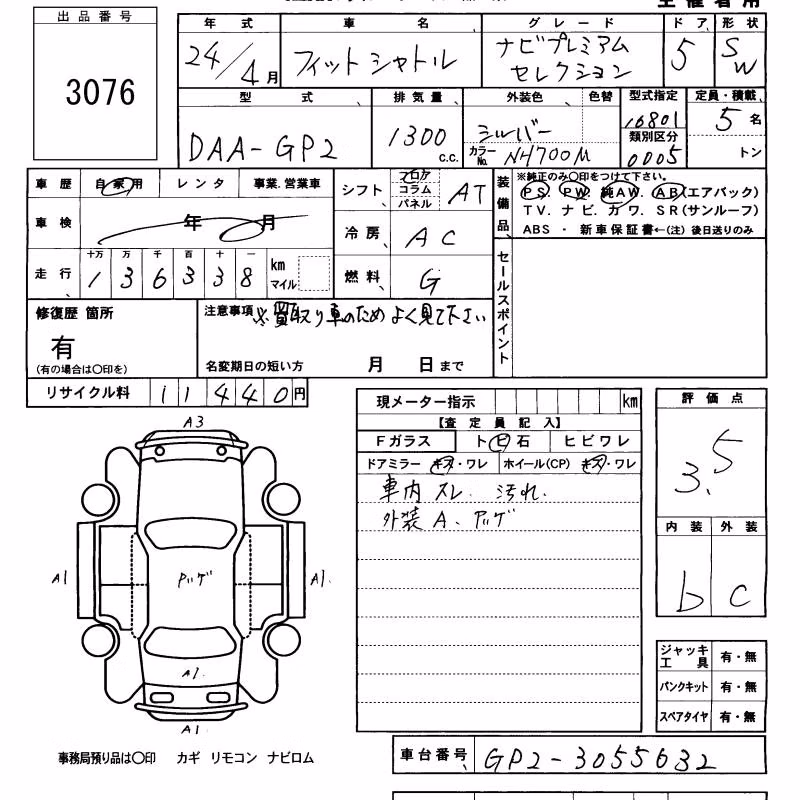 出品番号
3076
年式 車名 グレード ドア 形状
24/4月 フィットシャトル ナビプレミアム
セレクション 5 SW
型式 排気量 外装色 色替 型式指定 定員・積載
DAA-GP2 1300c.c. シルバー 16801 5名
カラーNo. NH700M 類別区分 0005 トン
車歴 自家用 レンタ 事業.営業車
シフト フロア コラム パネル AT
装備品 ※純正のみ〇印をつけて下さい。
PS. PW. 純AW. AB(エアバック)
TV. ナビ. カワ. SR(サンルーフ)
ABS ・ 新車保証書←(注) 後日送りのみ
車検 年 月
冷房 AC
走行 十万 万 千 百 十 一
1 3 6 3 3 8 km マイル
燃料 G
セールスポイント
修復歴 箇所
有
(有の場合は〇印を)
注意事項 ※買取り車のためよく見て下さい
名変期日の短い方 月 日まで
リサイクル料 11440円
現メーター指示 km
【査定員記入】
Fガラス トビ石 ヒビワレ
ドアミラー キズ・ワレ ホイール(CP) キズ・ワレ
車内 スレ 汚れ
外装 A、アッゲ
評価点
3.5
内装 外装
b c
A3
A1 A1.
A1.
A1
ジャッキ工具 有・無
パンクキット 有・無
スペアタイヤ 有・無
事務局預り品は〇印 カギ リモコン ナビロム
車台番号 GP2-3055632